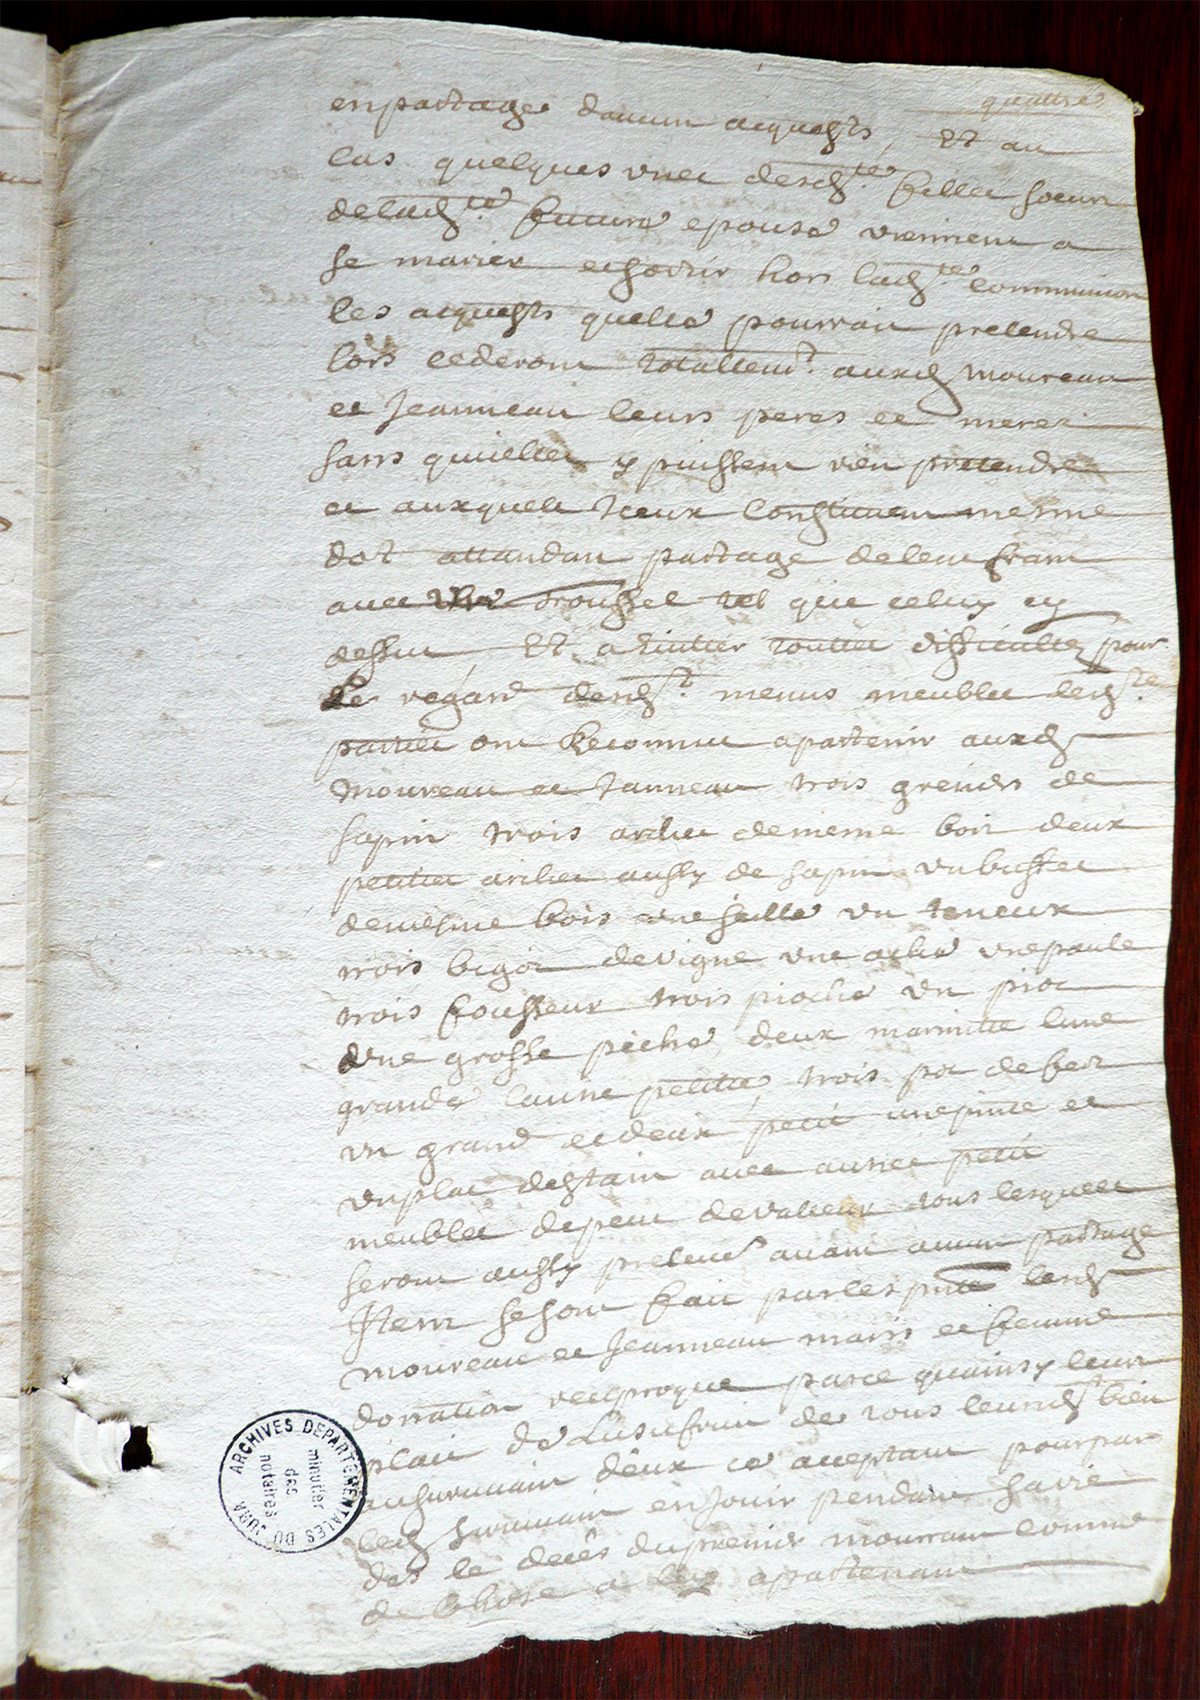 quattre
en partage d'aucun acquests, Et au
cas quelques unes desdtes filles soeurs
de ladte future epouse viennent a
se marier et sortir hors ladte communion
les acquests quelles pourroit pretendre
lors cederont totallemt auxd Moureau
et Jeanneau leurs peres et meres
sans quielles y puissent rien pretendre
et auxquels iceux constituent mesme
dot attandan partage de leur
avec troussel tel que celuy cy
dessus, Et a Eviter touttes difficultez pour
le regard desdt menus meubles lesdtes
parties ont Reconnu apartenir auxd
Moureau et Janneau trois greniers de
sapin trois arches de meme bois deux
petittes arches aussy de sapin un buffet
de mesme bois une seille un teneux
trois bigot de vigne une ache une paule
trois fousseux trois pioche un pioc
une grosse peche, deux marmitte lune
grande laune petitte, trois pot de fert
un grand et deux petit une pinte et
un plat destain avec autres petit
meubles de peut de valleur tous lesquels
seront aussy prelevé avant aucun partage
Item se sont fait par les pntes lesd
Moureau et Jeanneau maris et femme
donnation reciproque parce quainsy leur
plait de Lusufruit de tous leursd bien
au survivant deux ce acceptant pour par
led survivant en Jouir pendant sa vie
des le deces du premier mourrant comme
de chose a luy apartenant
ARCHIVES DEPARTEMENTALES DU JURA
minutier
des
notaires